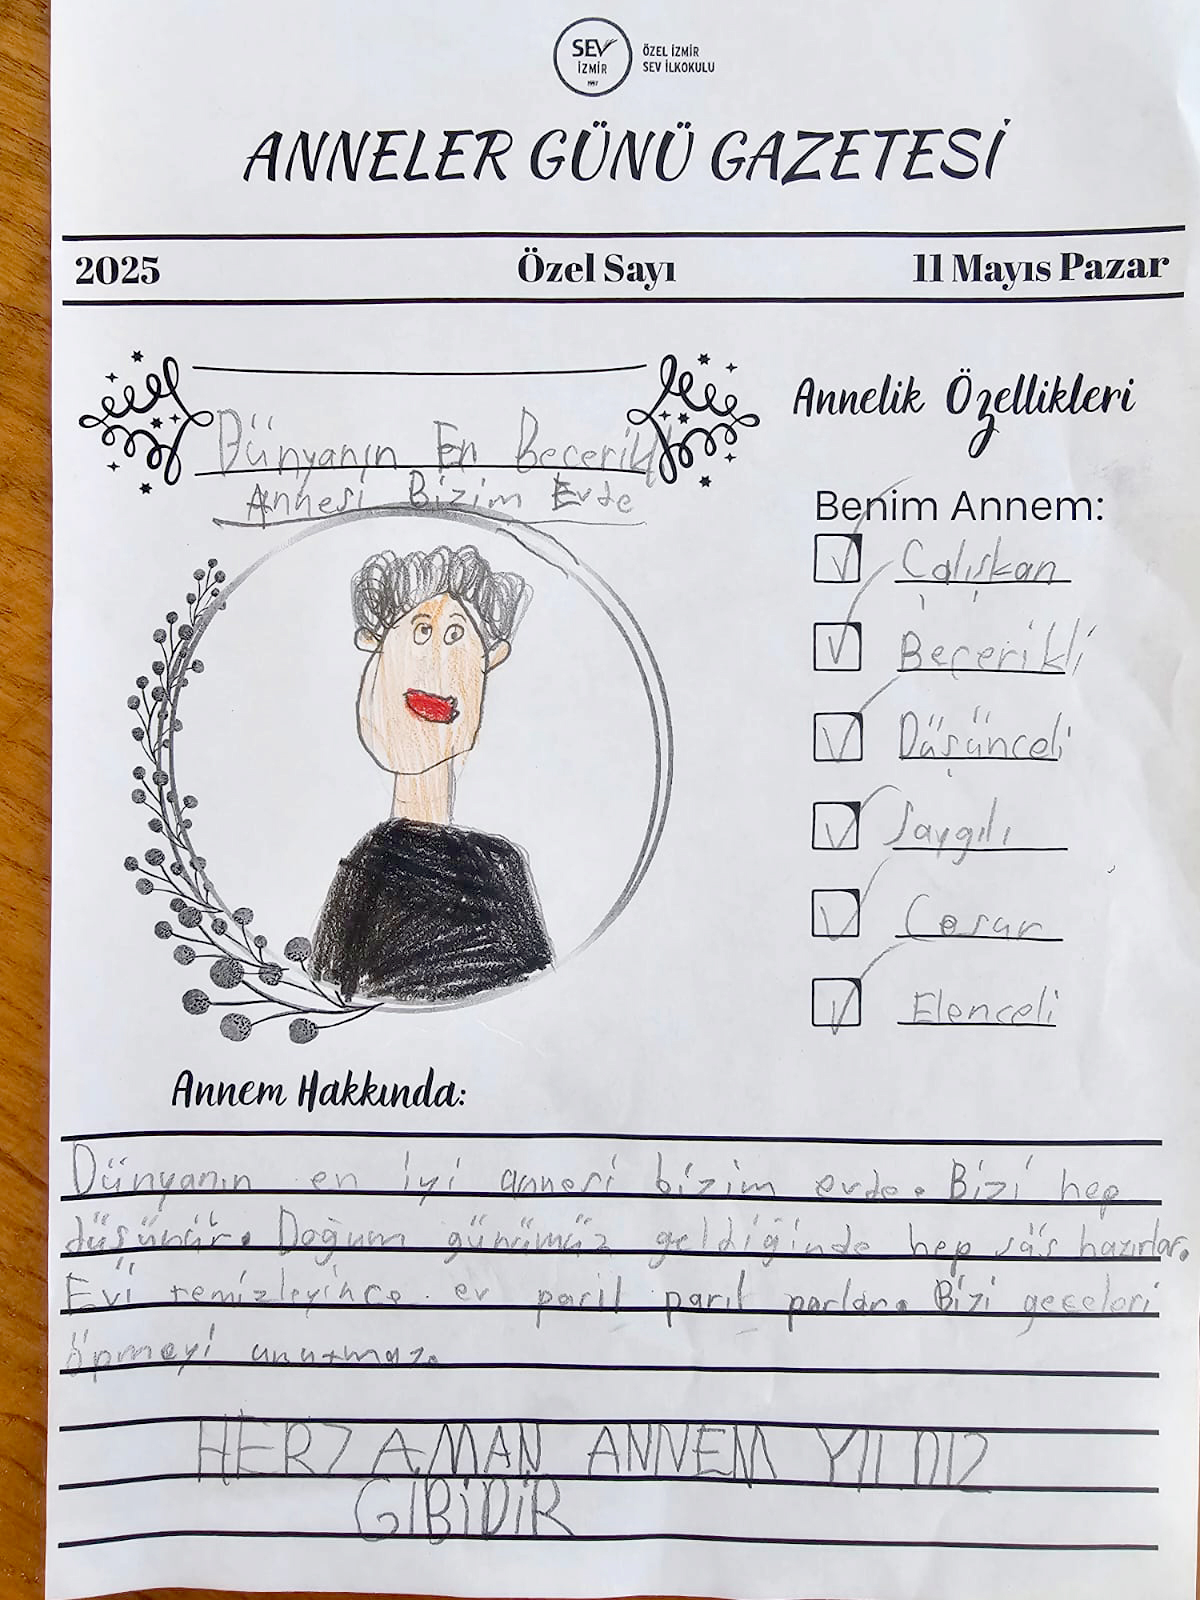 SEV
İZMİR
1997
ÖZEL İZMİR
SEV İLKOKULU
ANNELER GÜNÜ GAZETESİ
2025 Özel Sayı 11 Mayıs Pazar
Dünyanın En Becerikli
Annesi Bizim Evde
Annelik Özellikleri
Benim Annem:
Çalışkan
Beçerikli
Düşünceli
Saygılı
Cesur
Elenceli
Annem Hakkında:
Dünyanın en iyi annesi bizim evde. Bizi hep
düşünür. Doğum günümüz geldiğinde hep hazırlar.
Evi temizleyince ev parıl parıl parlar. Bizi geceleri
öpmeyi unutmaz.
HERZAMAN ANNEM YILDIZ
GİBİDİR